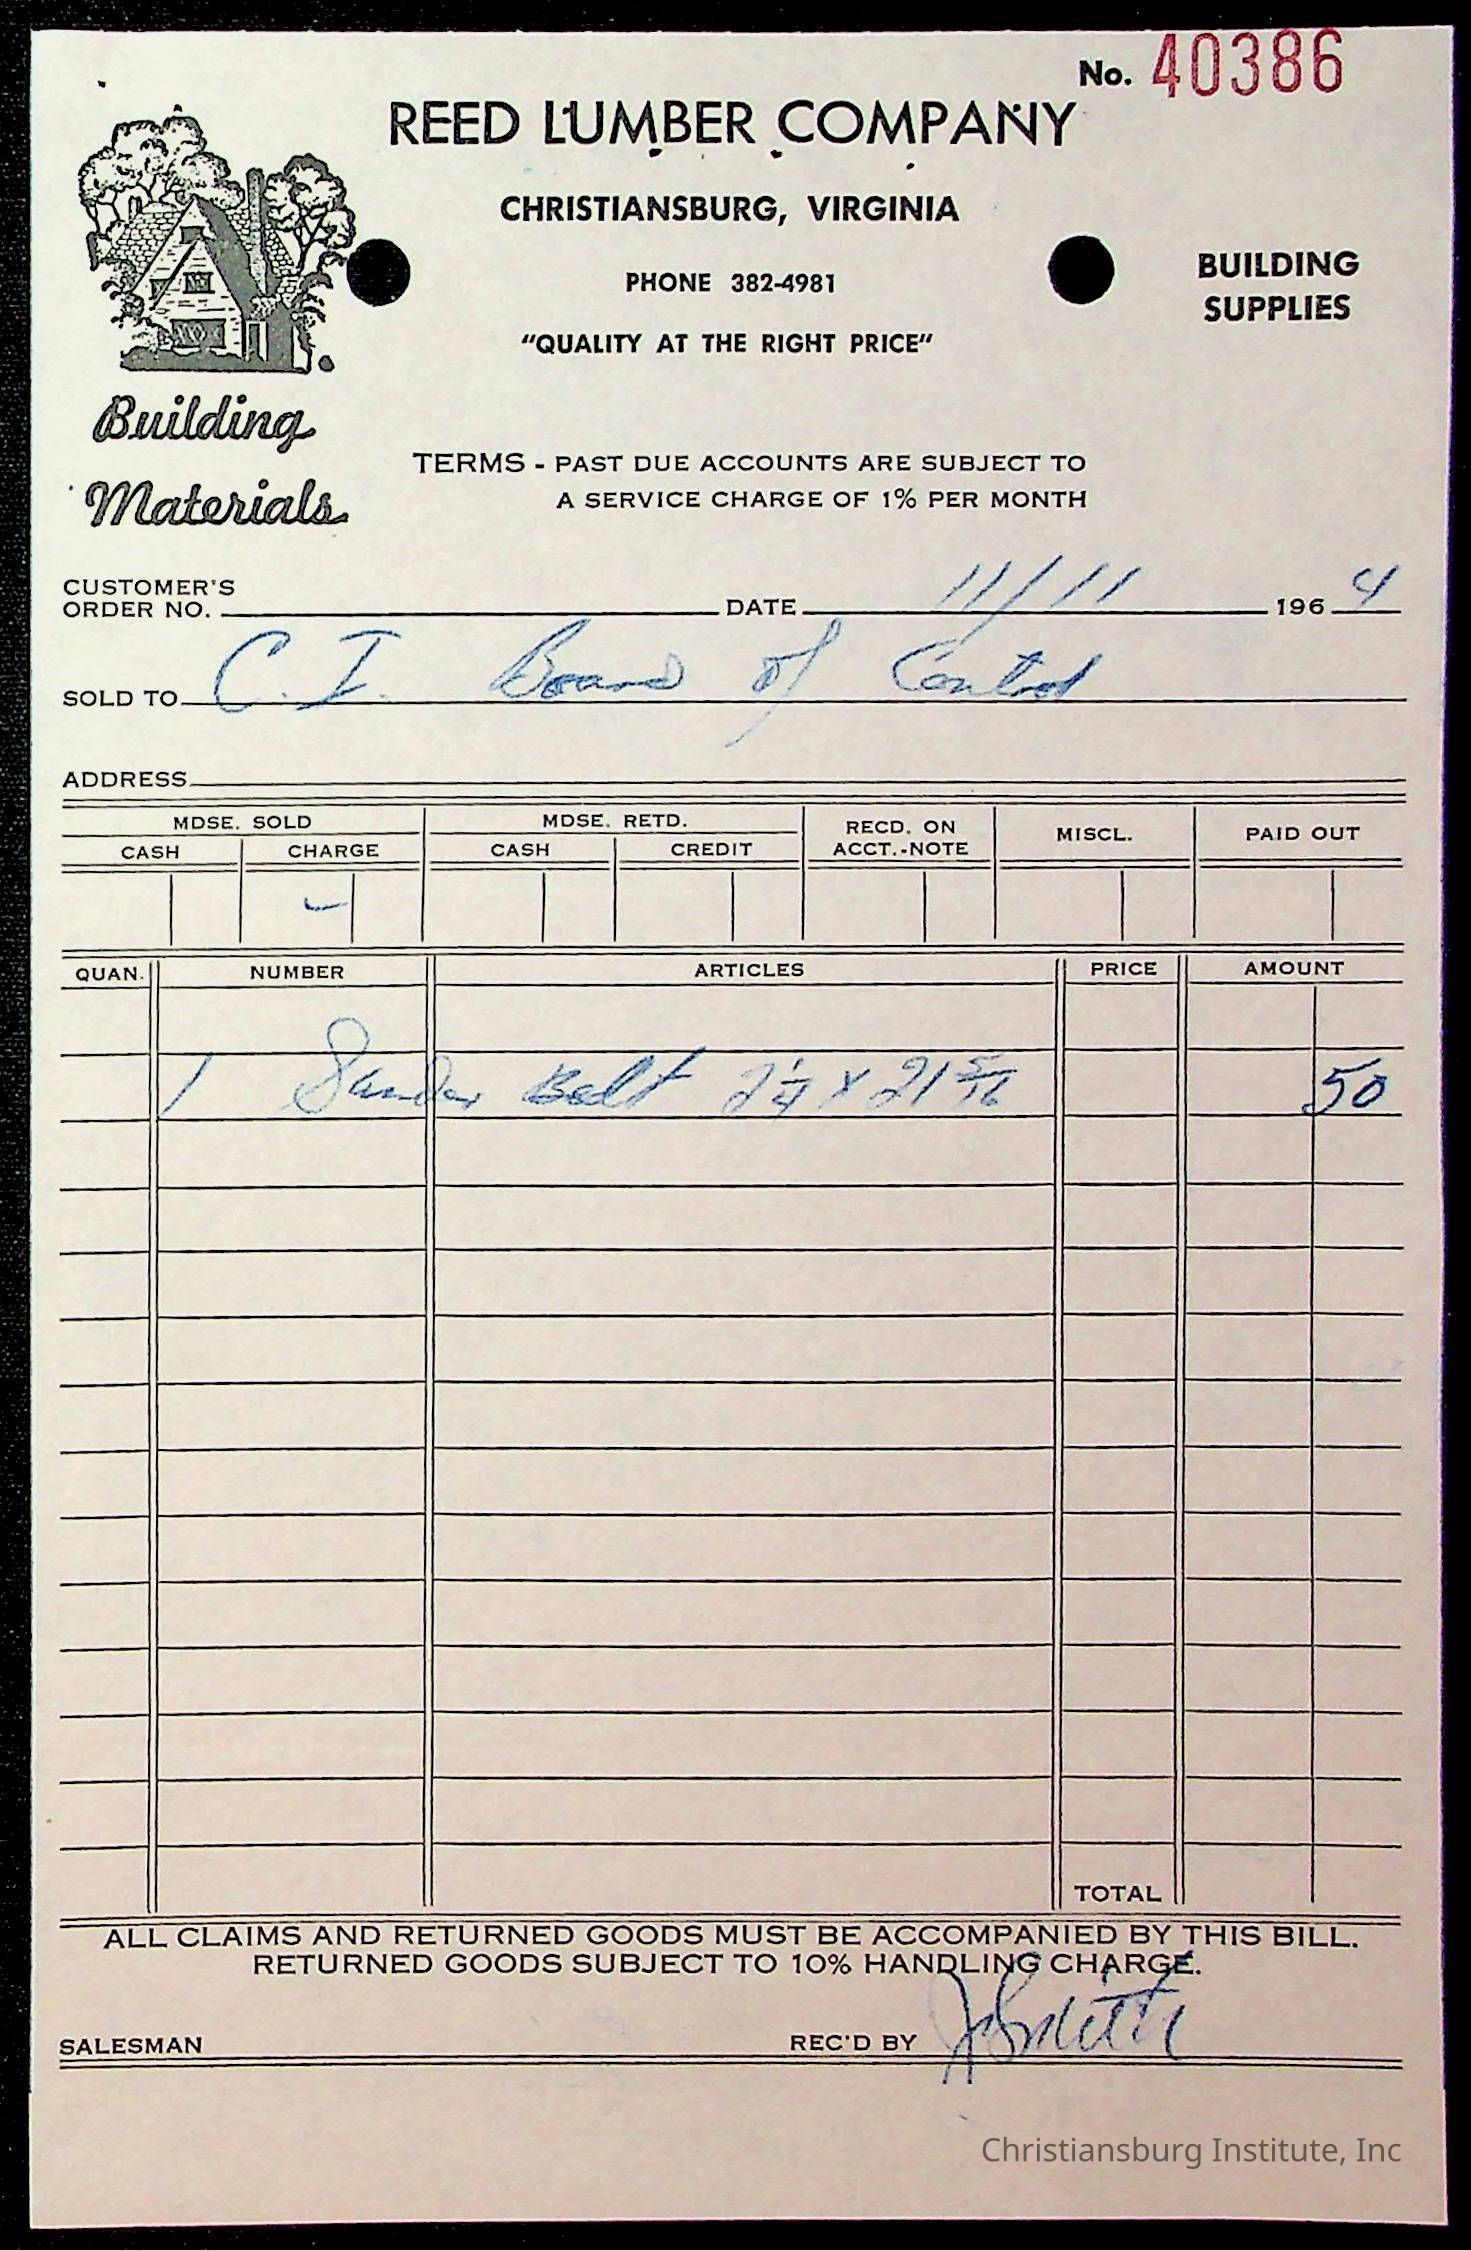 No. 40386
REED LUMBER COMPANY
CHRISTIANSBURG, VIRGINIA
PHONE 382-4981
"QUALITY AT THE RIGHT PRICE"
BUILDING
SUPPLIES
Building
Materials
TERMS - PAST DUE ACCOUNTS ARE SUBJECT TO
A SERVICE CHARGE OF 1% PER MONTH
CUSTOMER'S
ORDER NO. DATE 11/11 1964
SOLD TO C. I. Board of Control
ADDRESS
MDSE. SOLD MDSE. RETD. RECD. ON ACCT.-NOTE MISCL. PAID OUT
CASH CHARGE CASH CREDIT
QUAN. NUMBER ARTICLES PRICE AMOUNT
1 Sander Belt 2 1/4 x 21 5/16 50
TOTAL
ALL CLAIMS AND RETURNED GOODS MUST BE ACCOMPANIED BY THIS BILL.
RETURNED GOODS SUBJECT TO 10% HANDLING CHARGE.
SALESMAN REC'D BY Smith
Christiansburg Institute, Inc